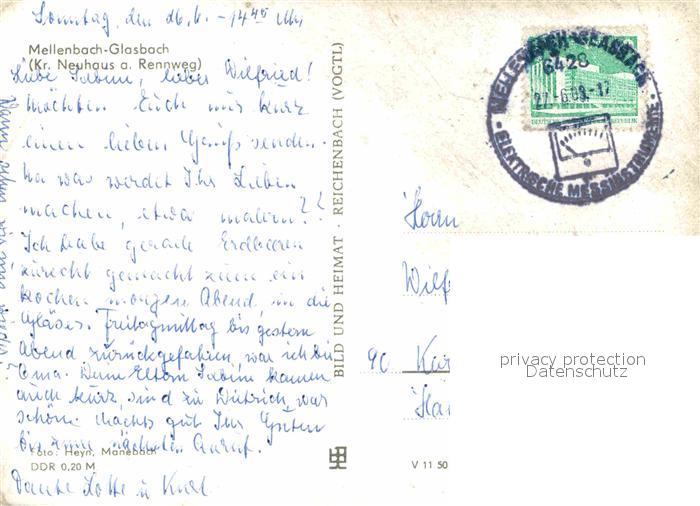 Sonntag, den 26.6. - 14⁴⁵ Uhr
Mellenbach-Glasbach
(Kr. Neuhaus a. Rennweg)
Liebe Sabine, lieber Wilfried!
Möchten Euch nur kurz
einen lieben Gruß senden.
Na was werdet Ihr Lieben
machen, etwa malern??
Ich habe gerade Erdbeeren
zurecht gemacht zum ein
kochen morgen Abend, in die
Gläser. Freitagmittag bis gestern
Abend zurückgefahren, war ich bei
Oma. Deine Eltern Sabine kamen
auch kurz, sind zu Dietrich, war
schön. Machts gut Ihr
bis zum nächsten Anruf.
Foto: Heyn, Manebach
DDR 0,20 M
Tante Lotte u Kurt
BILD UND HEIMAT · REICHENBACH (VOGTL)
V 11 50
MELLENBACH-GLASBACH
6428
27.-6.88.-17
ELEKTRISCHE MESSINSTRUMENTE
Herrn
Wilf
90 Kar
privacy protection
Datenschutz